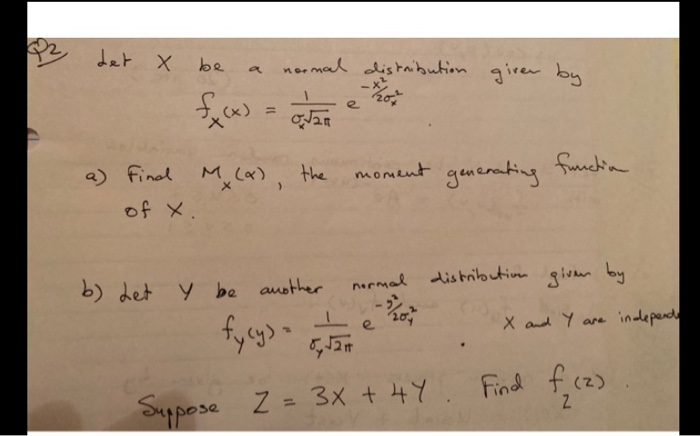 Q2 Let X be a normal distribution given by
f_X(x) = 1/(σ_x√2π) e^(-x²/2σ_x²) .
a) Find M_X(α), the moment generating function
of X.
b) Let Y be another normal distribution given by
f_Y(y) = 1/(σ_y√2π) e^(-y²/2σ_y²) . X and Y are independe
Suppose Z = 3X + 4Y. Find f_Z(z).